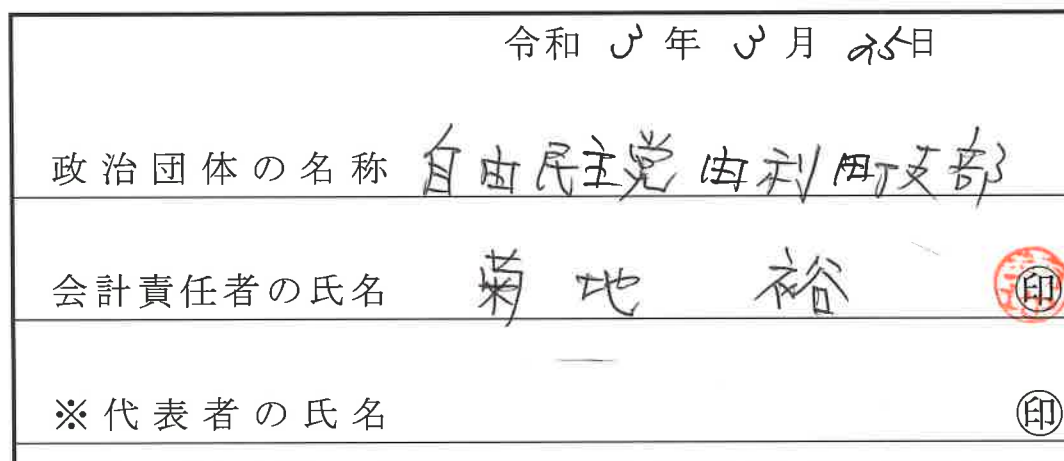 令和 3 年 3 月 25日
政治団体の名称 自由民主党由利町支部
会計責任者の氏名 菊地 裕 ㊞
※代表者の氏名 ㊞